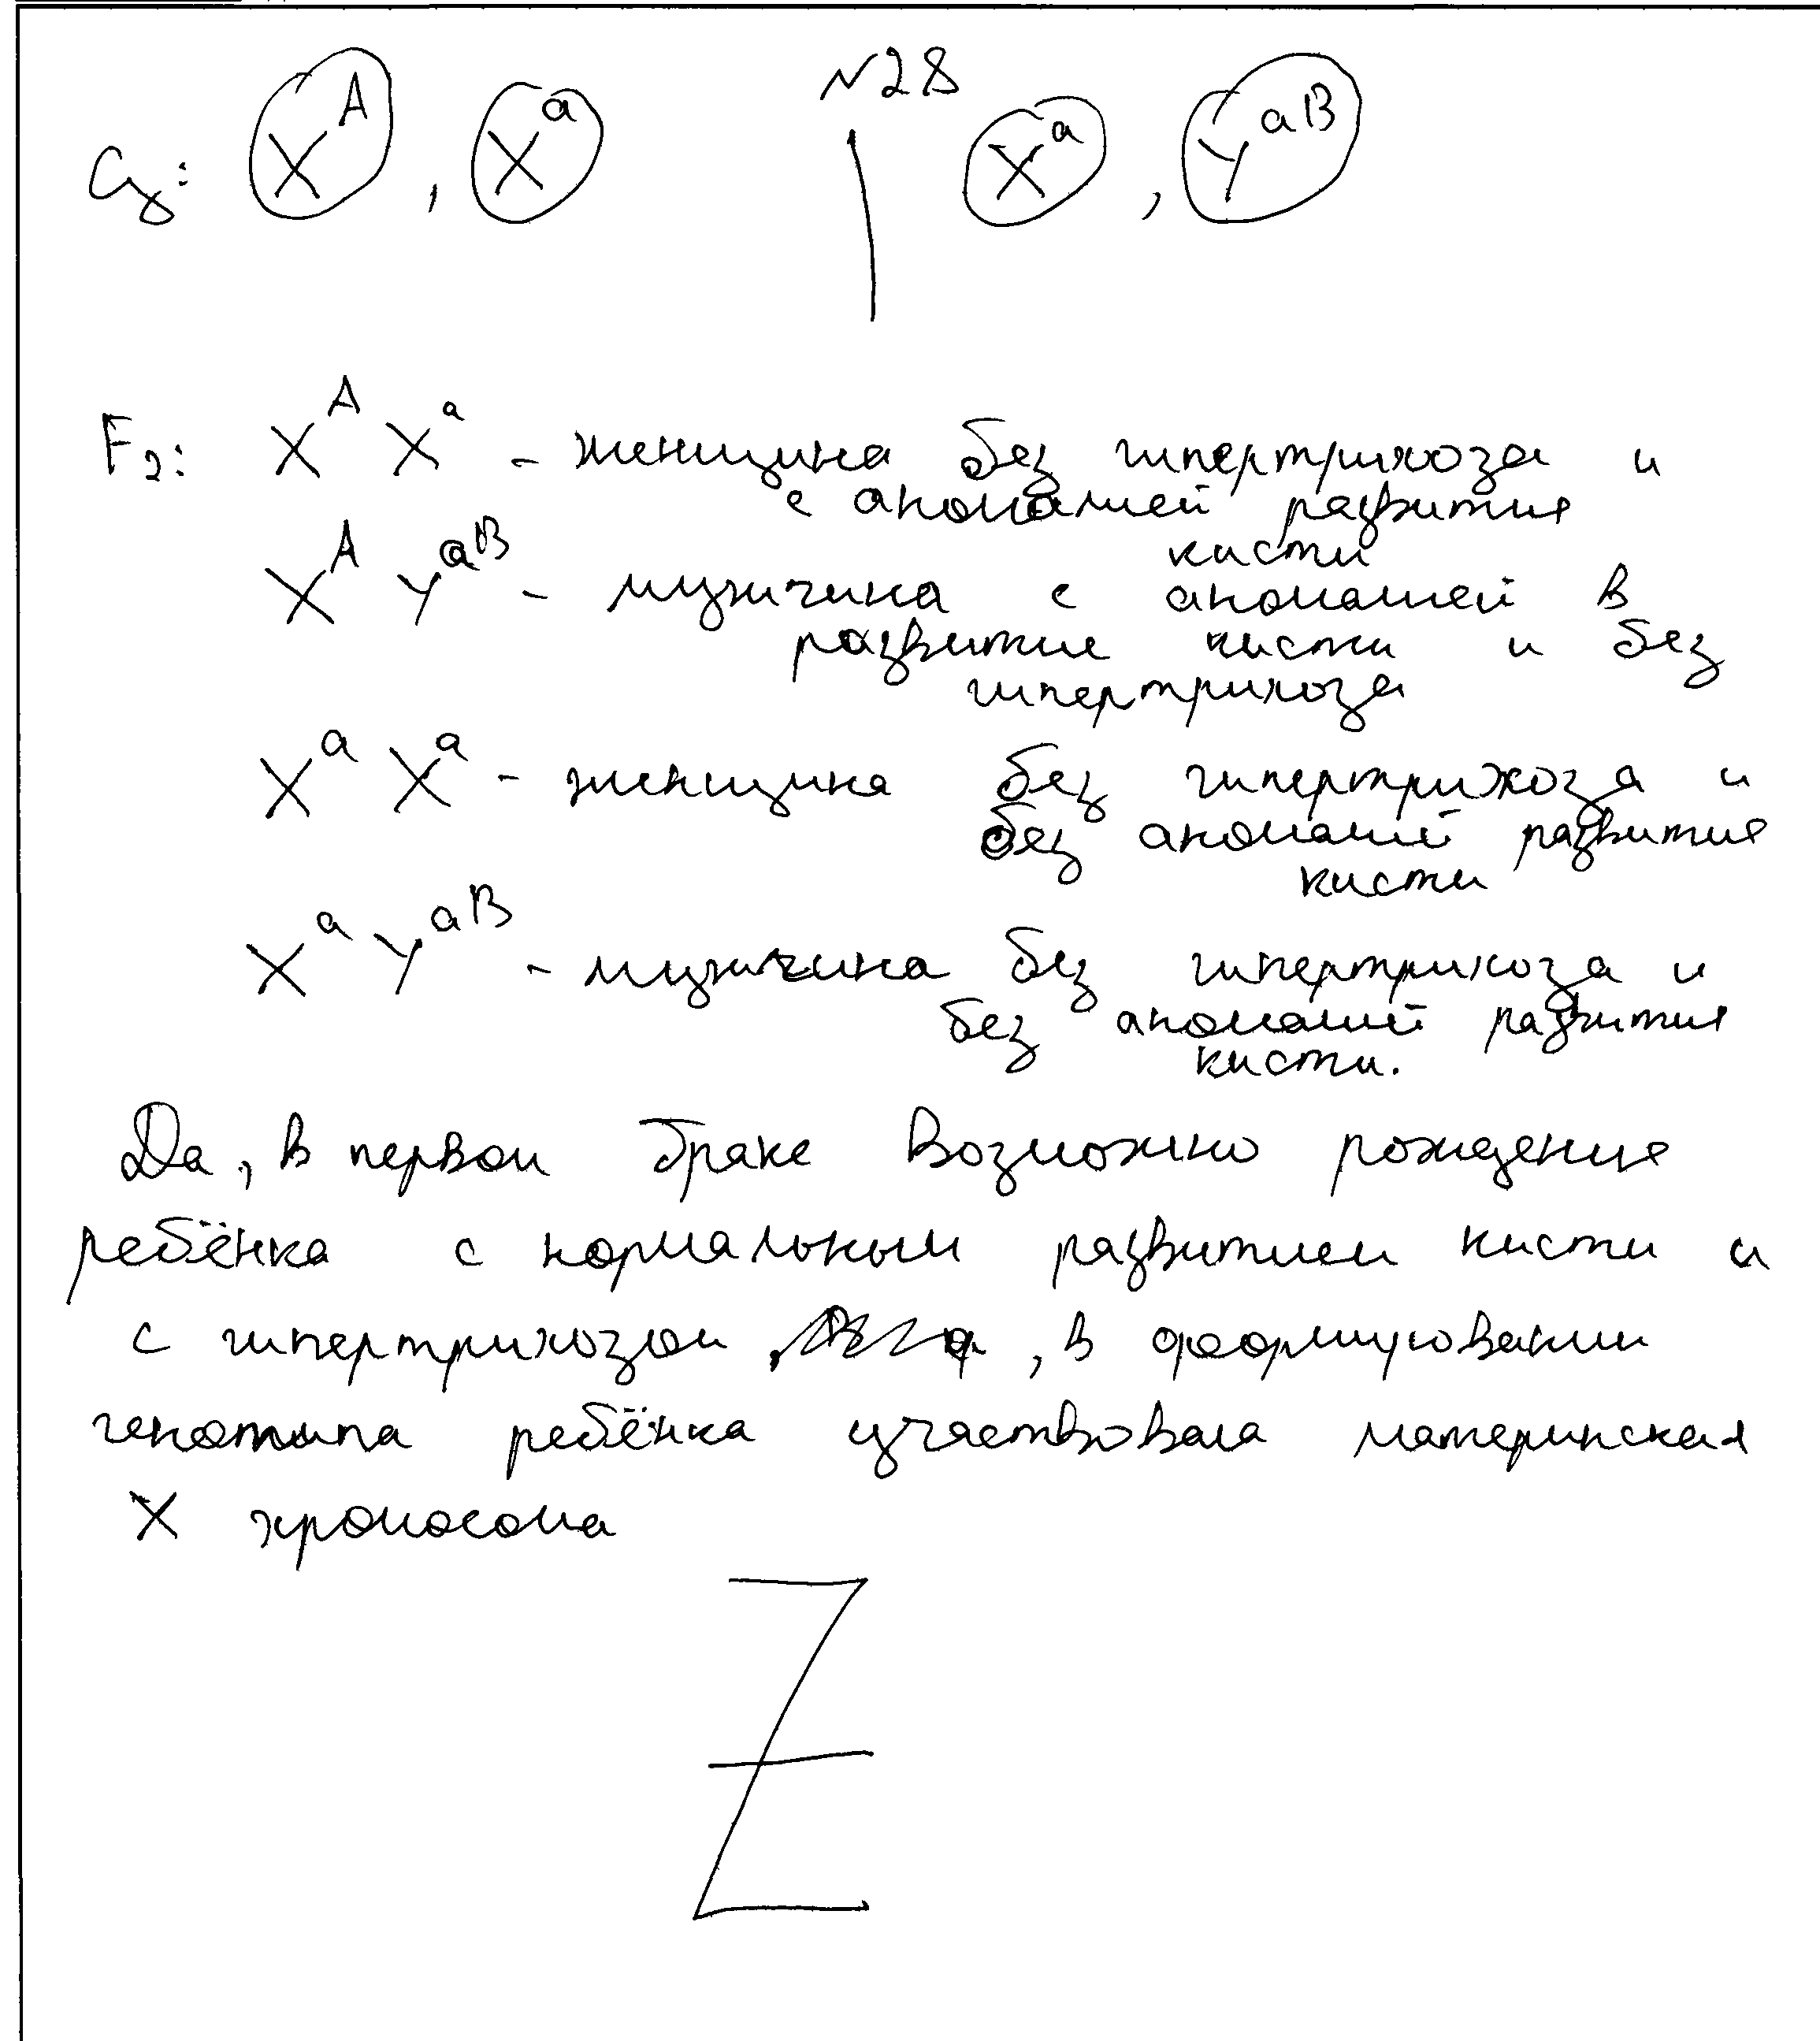 №28
G: X^A , X^a | X^a , Y^aB
F2: X^A X^a - женщина без гипертрихоза и
с аномалией развития
кисти
X^A Y^aB - мужчина с аномалией в
развитие кисти и без
гипертрихоза
X^a X^a - женщина без гипертрихоза и
без аномалий развития
кисти
X^a Y^aB - мужчина без гипертрихоза и
без аномалий развития
кисти.
Да, в первом браке возможно рождение
ребёнка с нормальным развитием кисти и
с гипертрихозом , в формировании
генотипа ребёнка участвовала материнская
X хромосома
Z